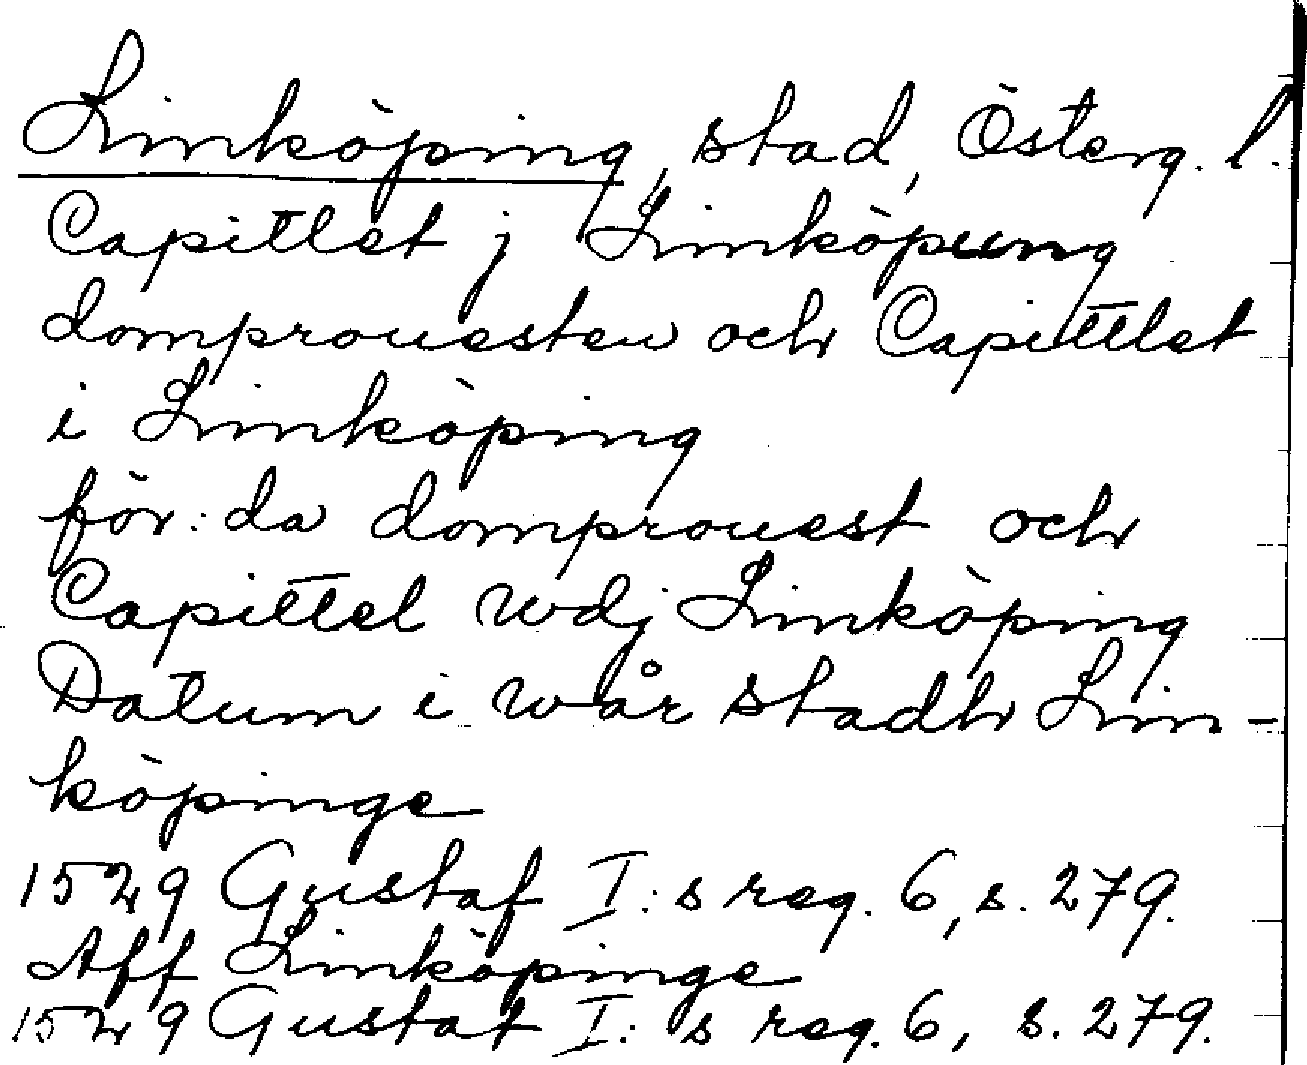 Linköping, stad, Österg. l.
Capitlet j Linköpung
domprouesten och Capittlet
i Linköping
för: da domprouest och
Capittel wdj Linköping
Datum i wår stadh Lin-
köpinge
1529 Gustaf I: s reg. 6, s. 279.
Aff Linköpinge
1529 Gustaf I: s reg. 6, s. 279.